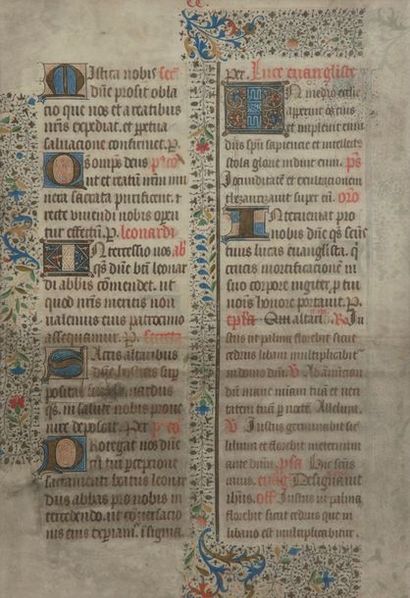 cc.
Mistica nobis sec
dne prosit obla
cio que nos et a reatibus
nris expediat. et ppetua
saluatione confirmet. p.
Os omps deus
et reatum nrm mu
nera sacrata purificent. et
recte viuendi nobis operen
tur effectum. p. leonardi
Intercessio nos ab
qs dne bti leonar
di abbis comendet. ut
quod nris meritis non
valemus eius patrocinio
assequamur. p. secreta
Sacris altaribus
dne hostias sup
positas nardus
qs. in salute nobis proue
nire deposcat. Per p co
Protegat nos dne
cu tui pceptione
sacramenti beatus leonar
dus abbas pro nobis in
tercedendo. ut conuersacio
nis eius experiam. insignia
per. Luce euangliste
In medio ecclie
aperuit os eius
et impleuit eum
dns spu sapiencie et intellectus
stola glorie induit eum. ps
Jocunditatem et exultationem
thezaurizauit super eu. oro
Interueniat pro
nobis dne qs scus
tuus lucas euanglista. q
crucis mortificationem in
suo corpore iugiter p tui
nois honore portauit. p.
epsla Qui altari. R Ju
stus ut palma florebit sicut
cedrus libani multiplicabit
in domo dni. V Ad annunciam
dum mane miam tua et veri
tatem tuam p nocte. Alleluia.
V Justus germinabit sic
lilium et florebit in eternum
ante dnm. psa Luc scus
euang Designauit
dns. off Justus ut palma
florebit sicut cedrus que in
libano est multiplicabitur.